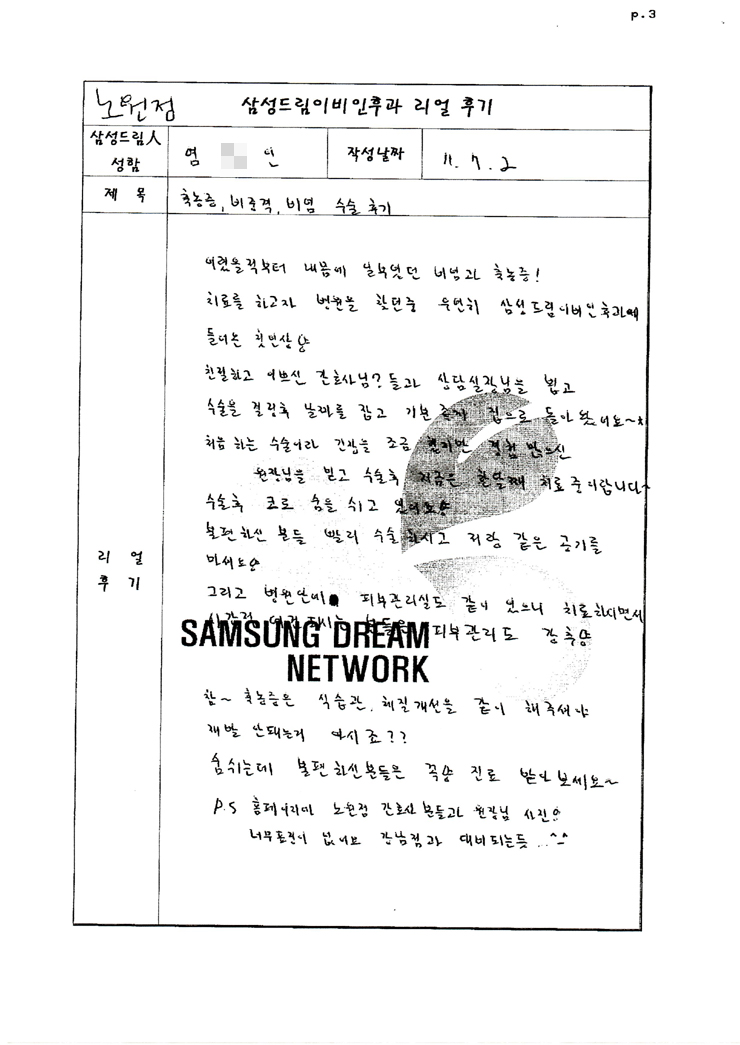 p.3
노원점 삼성드림이비인후과 리얼 후기
삼성드림人 성함
염 인
작성날짜
11. 7. 2
제 목
축농증, 비중격, 비염 수술 후기
리 얼
후 기
어렸을적부터 내몸에 일부엿던 비염과 축농증!
치료를 하고자 병원을 찾던중 우연히 삼성드림이비인후과에
들어온 첫인상
친절하고 이쁘신 간호사님? 들과 상담실장님을 뵙고
수술을 결정후 날짜를 잡고 기분 좋게 집으로 돌아 왔어요~
처음 하는 수술이라 긴장을 조금 했지만 경험 많으신
원장님을 믿고 수술후 지금은 한달째 치료 중이랍니다~
수술후 코로 숨을 쉬고 있어요
불편하신 분들 빨리 수술하시고 저랑 같은 공기를
마셔요
그리고 병원안에 피부관리실도 같이 있으니 치료하시면서
시간적 여건 되시는 분들은 피부관리도 강추
SAMSUNG DREAM
NETWORK
참~ 축농증은 식습관, 체질개선을 같이 해주셔야
재발 안돼는거 아시죠??
숨쉬는데 불편하신분들은 꼭 진료 받아보세요~
P.S 홈페이지에 노원점 간호사분들과 원장님 사진
너무 표정이 없어보 강남점과 대비되는듯...^^